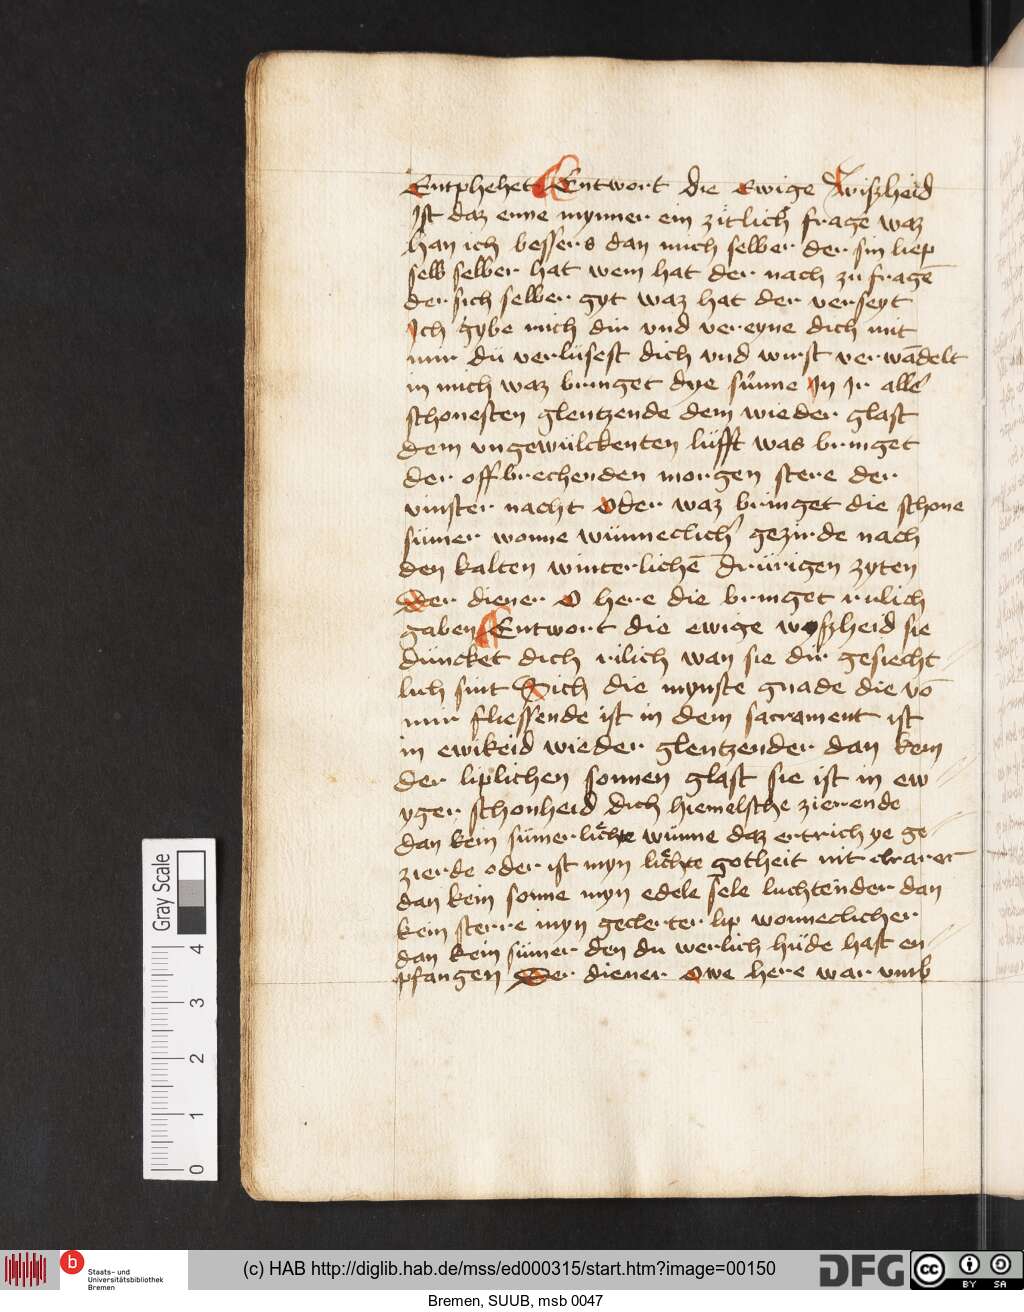 Entphehet Entwort die Ewige Wiszheid
Ist daz enne mynner ein zitlich frage waz
han ich bessers dan mich selber der sin liep
selb selber hat wem hat der nach zu fragē
der sich selber gyt waz hat der verseyt
Ich gybe mich dir vnd vereyne dich mit
mir du verlusest dich vnd wirst verwādelt
in mich waz bringet dye sūnne In Ir alle
schonesten glentzende dem wieder glast
dem vngewülckenten lüfft was bringet
der offbrechenden morgen stere der
vinster nacht oder waz bringet die schone
sümer wonne wünneclich gezirde nach
den kalten winterlichē drürigen zyten
Der diener O here die bringet rilich
gaben Entwort die ewige wyszheid sie
düncket dich rilich wan sie dir gesiecht
lich sint Sich die mynste gnade die vō
mir fliessende ist in dem sacrament ist
in ewikeid wieder glentzender dan kein
der liplichen sonnen glast sie ist in ew
yger schonheid dich hiemelsche zierende
dan kein sümerlichte wünne daz ertrich ye ge
zierde oder ist myn lichte gotheit nit clrarer
dan kein sonne myn edele sele luchtender dan
kein sterre myn geclerter lip wonneclicher
dan kein sümer den du werlich hüde hast en
pfangen Der diener Owe here war vmb
Gray Scale
4
3
2
1
0
b
Staats- und
Universitätsbibliothek
Bremen
(c) HAB http://diglib.hab.de/mss/ed000315/start.htm?image=00150
DFG
cc
BY SA
Bremen, SUUB, msb 0047